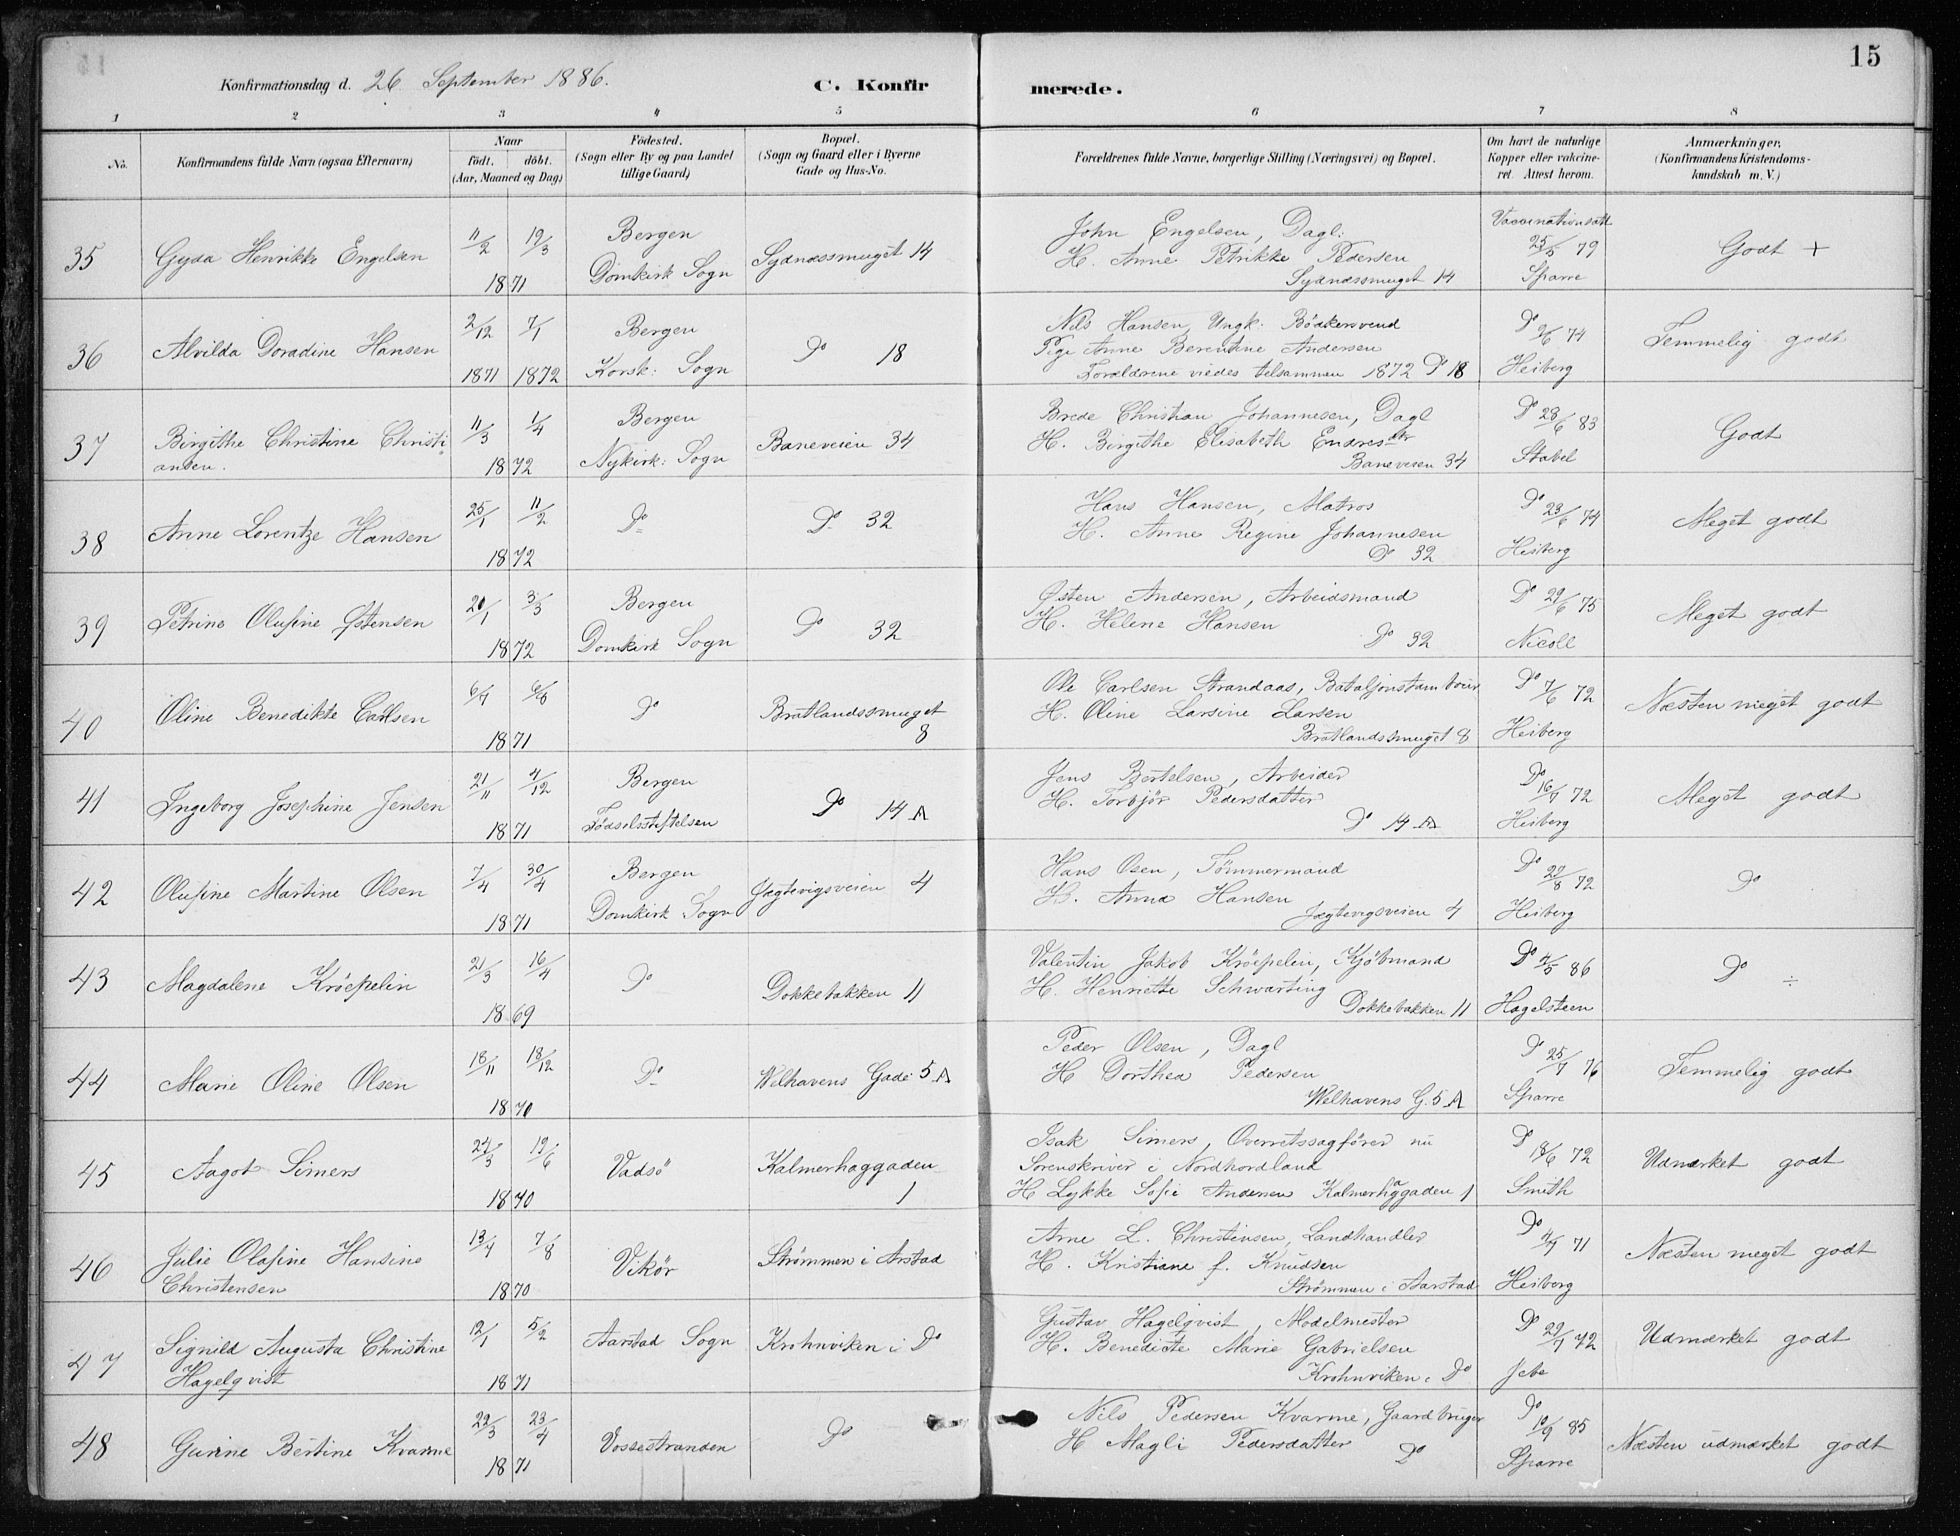 15
Konfirmationsdag d. 26 September 1886.
C. Konfirmerede.
1 2 3 4 5 6 7 8
No.
Konfirmandens fulde Navn (ogsaa Efternavn)
Naar
födt. döbt.
(Aar, Maaned og Dag)
Födested.
(Sogn eller By og paa Landet
tillige Gaard)
Bopæl.
(Sogn og Gaard eller i Byerne
Gade og Hus-No.
Forældrenes fulde Navne, borgerlige Stilling (Næringsvei) og Bopæl.
Om havt de naturlige
Kopper eller vakcine-
ret. Attest herom.
Anmærkninger.
(Konfirmandens Kristendoms-
kundskab m. V.)
35
Gyda Henrikke Engelsen
11/2 19/3
1871
Bergen
Domkirk Sogn
Sydnæssmuget 14
John Engelsen, Dagl:
H. Anne Petrikke Pedersen
Sydnæssmuget 14
Vaccinationsatt
25/5 79
Sparre
Godt +
36
Alvilda Doradine Hansen
2/12 7/1
1871 1872
Bergen
Korsk: Sogn
Do 18
Nils Hansen, Ungk: Bödkersvend
Pige Anne Berentine Andersen
Forældrene viedes tilsammen 1872 Do 18
Do 2/6 74
Heiberg
Temmelig godt
37
Birgithe Christine Christi
ansen.
11/3 1/4
1872
Bergen
Nykirk: Sogn
Baneveien 34
Brede Christian Johannesen, Dagl
H. Birgithe Elisabeth Endresdtr
Baneveien 34
Do 28/6 83
Stabel
Godt
38
Anne Lorentze Hansen
25/1 11/2
1872
Do
Do 32
Hans Hansen, Matros
H. Anne Regine Johannesen
Do 32
Do 23/6 74
Heiberg
Meget godt
39
Petrine Olufine Østensen
20/1 3/3
1872
Bergen
Domkirk Sogn
Do 32
Østen Andersen, Arbeidsmand
H. Helene Hansen
Do 32
Do 29/6 75
Nicoll
Meget godt
40
Oline Benedikte Carlsen
6/7 6/8
1871
Do
Bratlandssmuget
8
Ole Carlsen Strandaas, Bataljonstambour
H. Oline Larsine Larsen
Bratlandssmuget 8
Do 7/6 72
Heiberg
Næsten meget godt
41
Ingeborg Josephine Jensen
21/11 4/12
1871
Bergen
Födselsstiftelsen
Do 14 A
Jens Bertelsen, Arbeider
H. Torbjör Pedersdatter
Do 14 A
Do 16/7 72
Heiberg
Meget godt
42
Olufine Martine Olsen
7/4 30/4
1871
Bergen
Domkirk Sogn
Jægtevigsveien 4
Hans Osen, Tömmermand
H. Anna Hansen
Jægtevigsveien 4
Do 27/8 72
Heiberg
Do
43
Magdalene Kröepelin
21/3 16/4
1869
Do
Dokkebakken 11
Valentin Jakob Kröepelin, Kjöbmand
H. Henriette Schwarting
Dokkebakken 11
Do 4/5 86
Hagelsteen
Do ÷
44
Marie Oline Olsen
18/11 18/12
1870
Do
Welhavens Gade 5 A
Peder Olsen, Dagl
H Dorthea Pedersen
Welhavens G. 5 A
Do 25/7 76
Sparre
Temmelig godt
45
Aagot Simers
24/3 19/6
1870
Vadsö
Kalmerhaggaden
1
Isak Simers, Overretssagförer nu
Sorenskriver i Nordhordland
H Lykke Sofie Andersen Kalmerhaggaden 1
Do 18/6 72
Smith
Udmærket godt
46
Julie Olafine Hansine
Christensen
13/7 7/8
1870
Vikör
Strømmen i Arstad
Arne L. Christensen, Landhandler
H. Kristiane f. Knudsen
Strømmen i Aarstad
Do 4/7 71
Heiberg
Næsten meget godt
47
Signild Augusta Christine
Hagelqvist
12/1 5/2
1871
Aarstad Sogn
Krohnviken i Do
Gustav Hagelqvist, Modelmester
H. Benedicte Marie Gabrielsen
Krohnviken i Do
Do 29/7 72
Jebe
Udmærket godt
48
Gurine Bertine Kvarme
22/3 23/4
1871
Vossestranden
Do
Nils Pedersen Kvarme, Gaardbruger
H Magli Pedersdatter
Do
Do 10/9 85
Sparre
Næsten udmærket godt